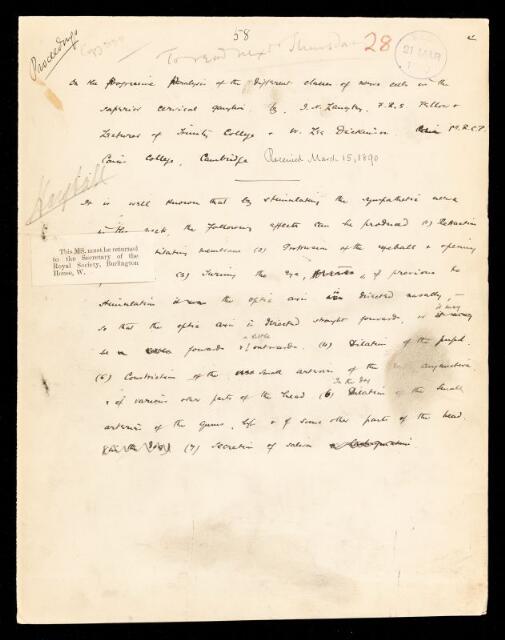 58
Proceedings
To read next Thursday
28
21 MAR
On the Progressive Paralysis of the different classes of nerve cells in the
superior cervical ganglion. by. J. N. Langley, F.R.S. Fellow &
Lecturer of Trinity College & W. Lee Dickinson M.R.C.P.
Caius College, Cambridge Received March 15, 1890
It is well known that by stimulating the sympathetic nerve
in the neck, the following effects can be produced (1) Retraction
This MS. must be returned
to the Secretary of the
Royal Society, Burlington
House, W.
membrane (2) Protrusion of the eyeball & opening
(3) Turning the eye, & if previous to
stimulation the optic axis is directed nasally,
so that the optic axis is directed straight forwards, or it may
be forwards & a little outwards. (4) Dilation of the pupil.
(5) Constriction of the small arteries of the conjunctiva
& of various other parts of the head (6) In the dog Dilation of the small
arteries of the gums, lips & of some other parts of the head.
(in the dog) (7) Secretion of saliva